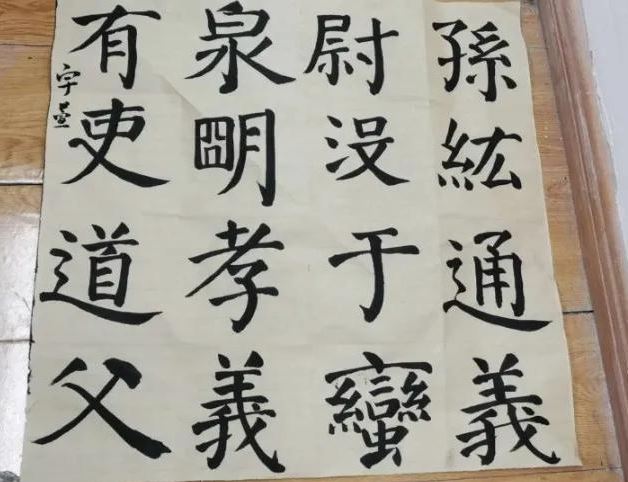 孫紘通義
尉没于蠻
泉朙孝義
有吏道父